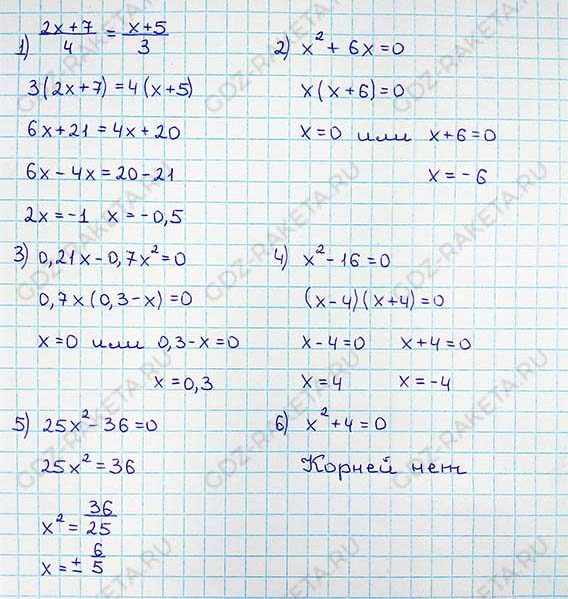 1) (2x+7)/4 = (x+5)/3
3(2x+7)=4(x+5)
6x+21=4x+20
6x-4x=20-21
2x=-1 x=-0,5
2) x²+6x=0
x(x+6)=0
x=0 или x+6=0
x=-6
3) 0,21x-0,7x²=0
0,7x(0,3-x)=0
x=0 или 0,3-x=0
x=0,3
4) x²-16=0
(x-4)(x+4)=0
x-4=0 x+4=0
x=4 x=-4
5) 25x²-36=0
25x²=36
x²=36/25
x=±6/5
6) x²+4=0
Корней нет
GDZ-RAKETA.RU